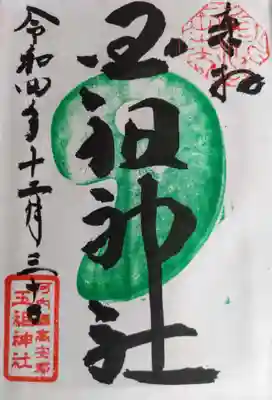 奉拝
玉祖神社
令和四年十二月三十日
河内国高安郡
玉祖神社